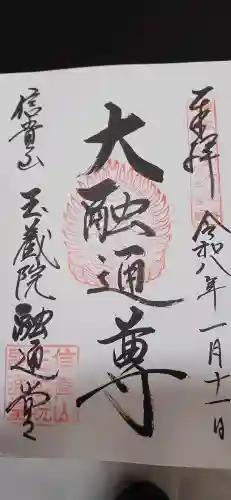 奉拝 令和八年一月十一日
大融通尊
信貴山 玉蔵院 融通堂